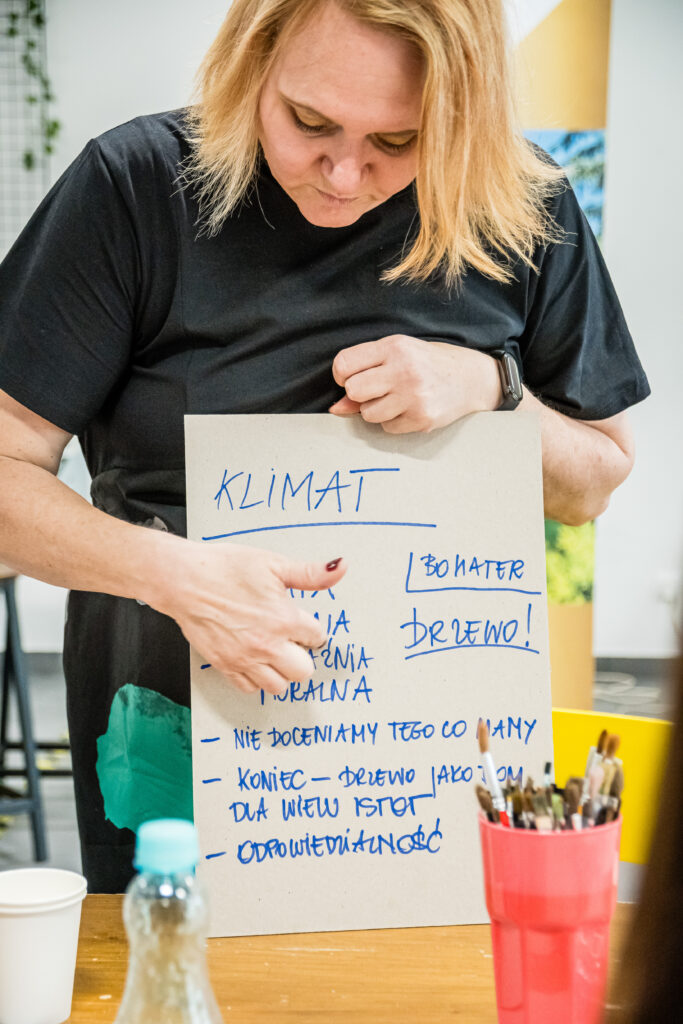 KLIMAT
BOHATER
DRZEWO!
MORALNA
– NIE DOCENIAMY TEGO CO MAMY
– KONIEC – DRZEWO JAKO DOM
DLA WIELU ISTOT
– ODPOWIEDZIALNOŚĆ